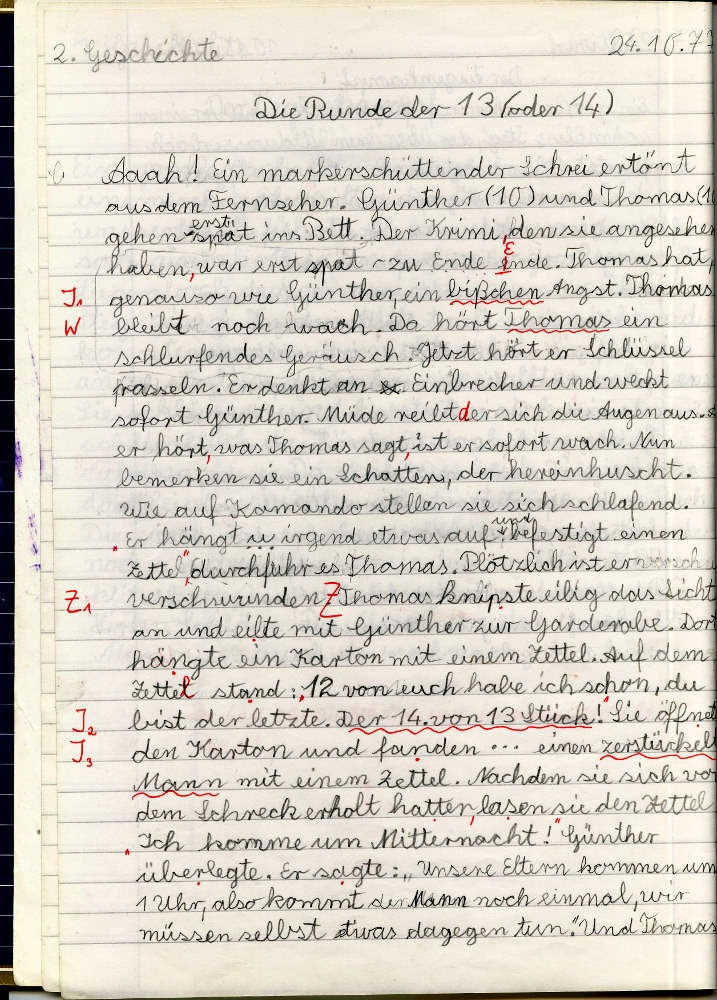 2. Geschichte 24.10.77
Die Runde der 13 (oder 14)
Aaah! Ein markerschüttender Schrei ertönt
aus dem Fernseher. Günther (10) und Thomas (10
erst
gehen spät ins Bett. Der Krimi, den sie angesehen
haben, war erst spät zu Ende Ende. Thomas hat,
J1 genauso wie Günther, ein bißchen Angst. Thomas
W bleibt noch wach. Da hört Thomas ein
schlurfendes Geräusch. Jetzt hört er Schlüssel
rasseln. Er denkt an Einbrecher und weckt
sofort Günther. Müde reibt der sich die Augen aus.
er hört, was Thomas sagt, ist er sofort wach. Nun
bemerken sie ein Schatten, der hereinhuscht.
Wie auf Komando stellen sie sich schlafend.
und
"Er hängt irgend etwas auf befestigt einen
Zettel", durchfuhr es Thomas. Plötzlich ist er versch
Z1 verschwunden Z Thomas knipste eilig das Licht
an und eilte mit Günther zur Garderobe. Dort
hängte ein Karton mit einem Zettel. Auf dem
Zettel stand: "12 von euch habe ich schon, du
J2 bist der letzte. Der 14. von 13 Stück!" Sie öffnet
J3 den Karton und fanden ... einen zerstückel
Mann mit einem Zettel. Nachdem sie sich vo
dem Schreck erholt hatten, lasen sie den Zettel
"Ich komme um Mitternacht!" Günther
überlegte. Er sagte: „Unsere Eltern kommen um
1 Uhr, also kommt der Mann noch einmal, wir
müssen selbst etwas dagegen tun." Und Thomas